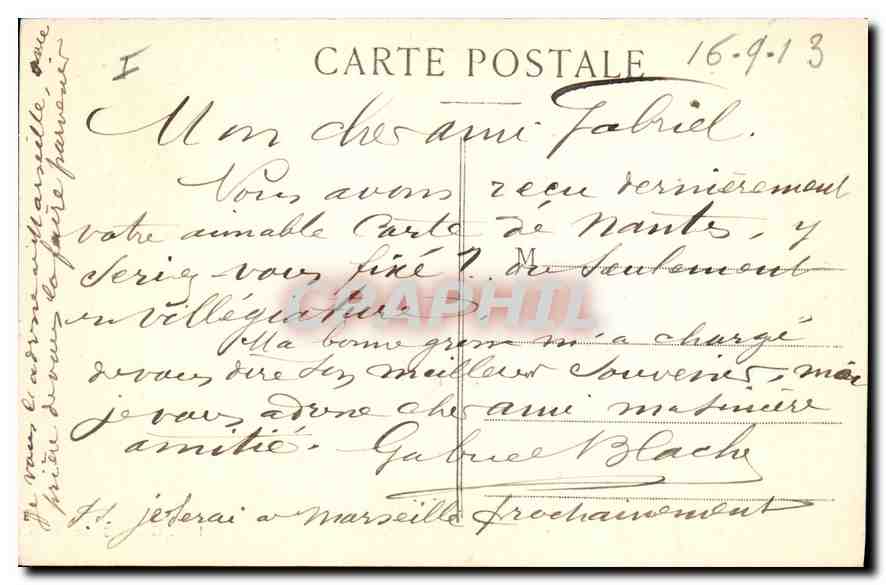 I
CARTE POSTALE
16-9-13
Mon cher ami Gabriel.
Nous avons reçu dernièrement
votre aimable Carte de Nantes, y
Seriez-vous fixé ? ou Seulement
M
en villégiature ?
CPAPHIL
Ma bonne m'a chargé
de vous dire Ses meilleurs Souvenirs, moi
je vous adresse cher ami ma Sincère
amitié. Gabriel Blache
P.S. je Serai a Marseille prochainement
Je vous l'adresse a Marseille, avec
prière de vous la faire parvenir